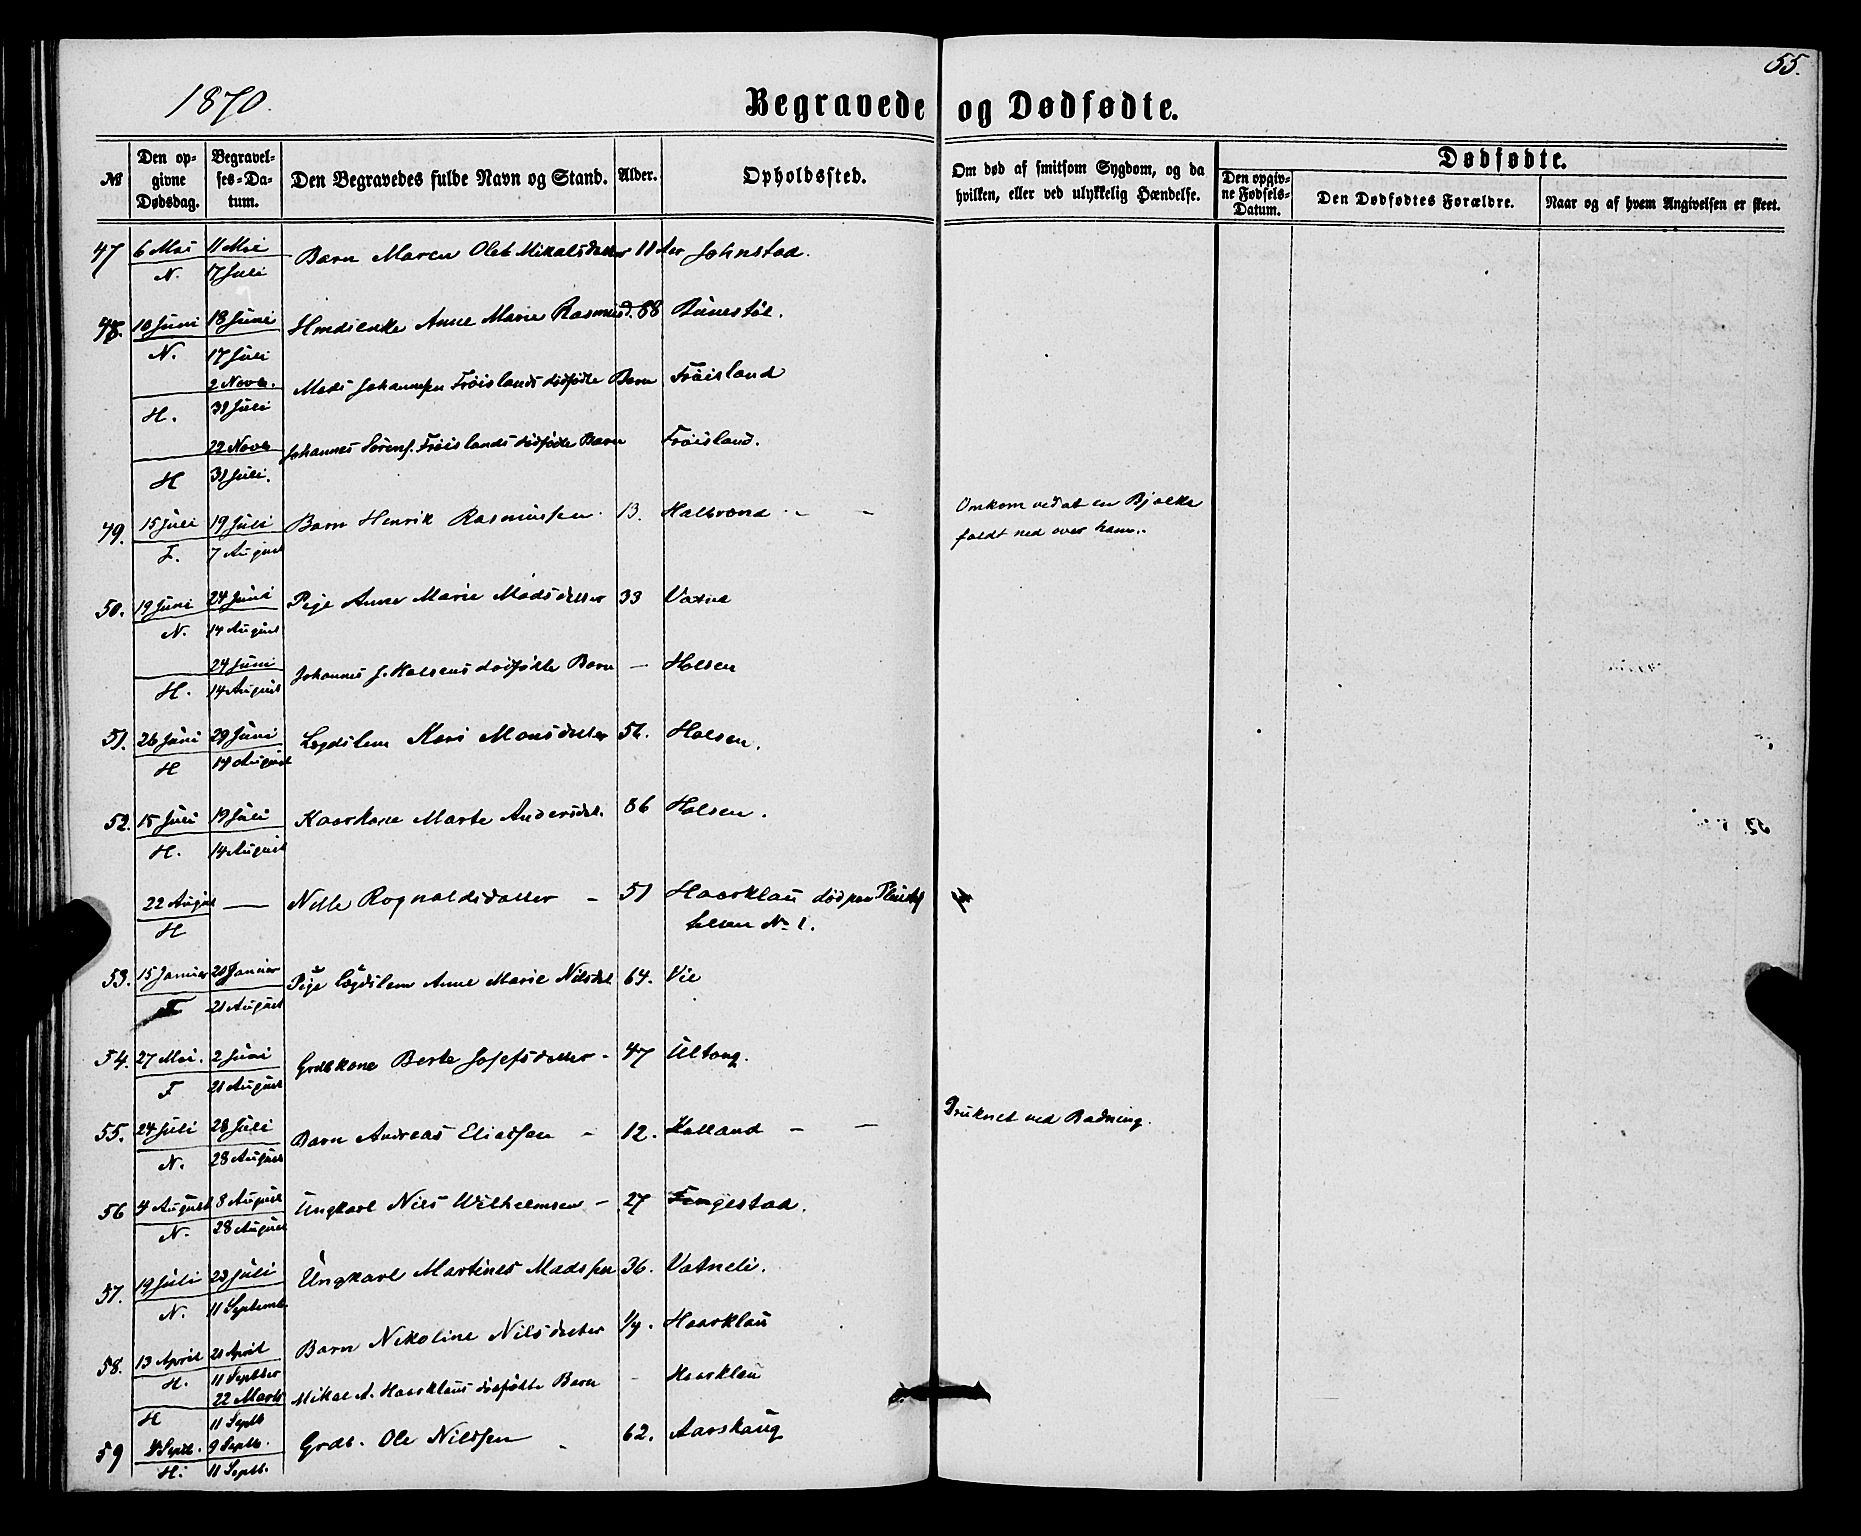 55.
1870.
Begravede og Dødfødte.
№
Den opgivne Dødsdag.
Begravelses-Datum.
Den Begravedes fulde Navn og Stand.
Alder.
Opholdssted.
Om død af smitsom Sygdom, og da hvilken, eller ved ulykkelig Hændelse.
Dødfødte.
Den opgivne Fødsels-Datum.
Den Dødfødtes Forældre.
Naar og af hvem Angivelsen er skeet.
47 6 Mai 11 Mai Barn Maren Olet Mikalsdatter 11 Aar Johnstad.
N. 17 Juli
48. 10 Juni 18 Juni Anne Marie Rasmusd. 88 Bünestöl.
N. 17 Juli
2 Novb. Mads Johannesen Fröislands dödfödte Barn Fröisland
H. 31 Juli
22 Novb Johannes Sörens. Fröislands dödfödte Barn Fröisland.
H 31 Juli.
49. 15 Juli 19 Juli Barn Henrik Rasmussen. 13. Kalvrand - - Omkom ved at en Bjælke
J. 7 August faldt ned over ham.
50. 19 Juni 24 Juni Pige Anne Marie Madsdatter 33 Vatne
N. 14 August
24 Juni Johannes J. Holsens dödfödte Barn - Holsen
H. 14 August
51. 26 Juni 29 Juni Lægdslem Kari Monsdatter 56. Holsen.
H 14 August
52. 15 Juli 19 Juli Kaarkone Marte Andersdat. 86 Holsen.
H. 14 August
22 August — Nille Rognaldsdatter - 51 Haarklau död paa
H №. 1.
53. 15 Januar 20 Januar Pige Lægdslem Anne Marie Nilsdat. 64. Vie
F 21 August
54. 27 Mai. 2 Juni Grdbkone Berte Josefsdatter - 47 Ultang.
F 21 August
55. 24 Juli 28 Juli Barn Andreas Eliassen - 12. Kalland - - Druknet ved Badning.
N. 28 August
56 4 August 8 August Ungkarl Nils Wilhelmsen - 27 Fengestad.
N. 28 August
57. 19 Juli 23 Juli Ungkarl Martines Madssen 36. Vatneli.
N. 11 Septemb.
58. 13 April 21 April Barn Nikoline Nilsdatter 1/4. Haarklau
H. 11 Septber
22 Marts Mikal A. Haarklaus dödfödte Barn - Haarklau
H 11 Septb
59 4 Septb. 9 Septb. Grdb. Ole Nilssen - 62. Aarskaug
H. 11 Septb.